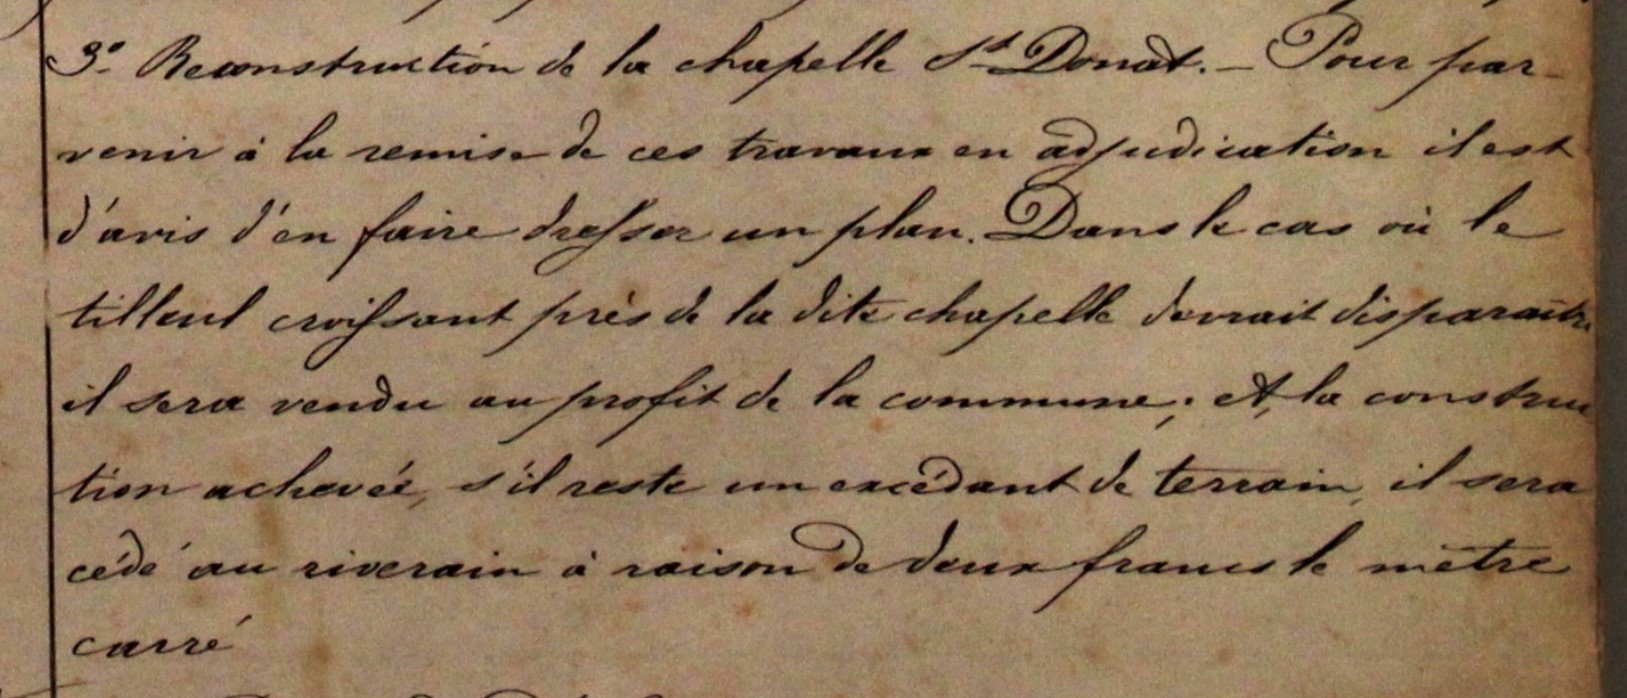 3° Reconstruction de la chapelle St Donat. — Pour par-
venir à la remise de ces travaux en adjudication il est
d'avis d'en faire dresser un plan. Dans le cas où le
tilleul croissant près de la dite chapelle devrait disparaître
il sera vendu au profit de la commune; et, la construc
tion achevée, s'il reste un excédant de terrain, il sera
cédé au riverain à raison de deux francs le mètre
carré